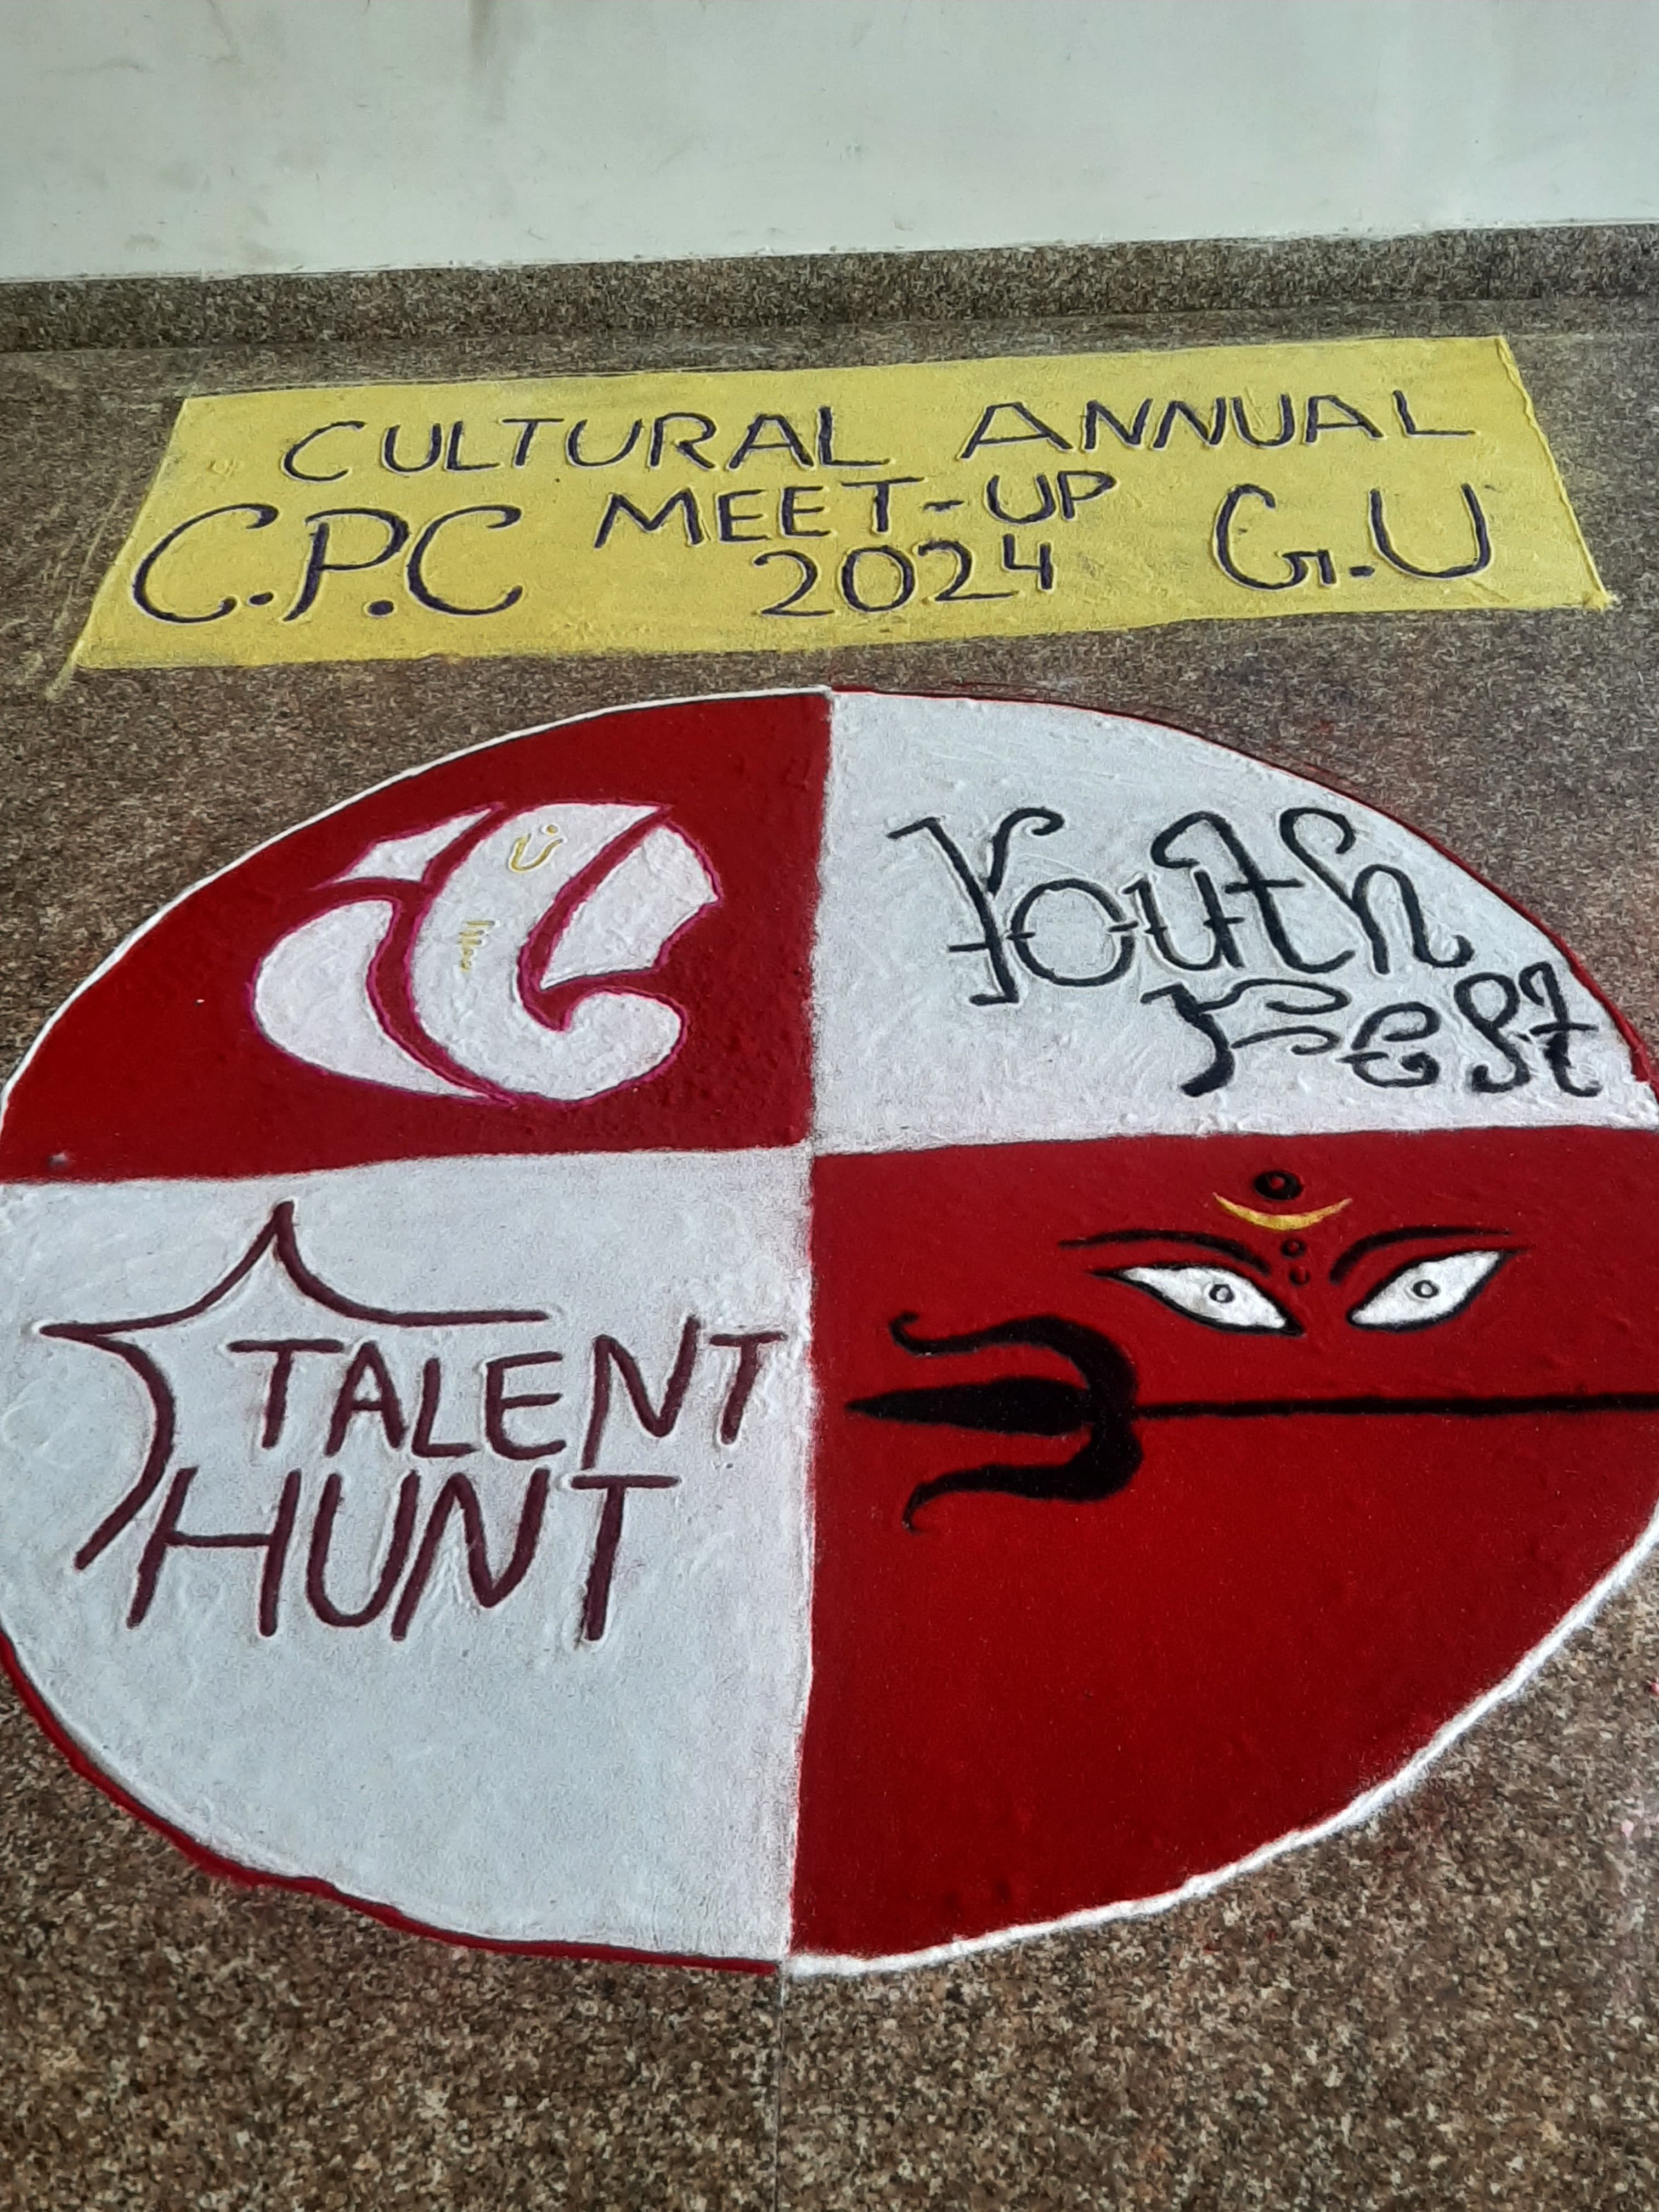 CULTURAL ANNUAL
MEET-UP
C.P.C 2024 G.U
Youth
Fest
TALENT
HUNT